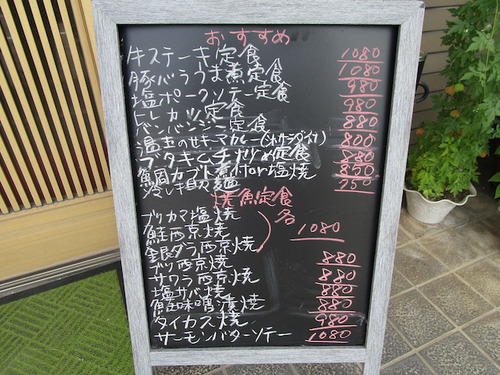 おすすめ
牛ステーキ定食 1080
豚バラうま煮定食 1080
塩ポークソテー定食 980
ヒレカツ定食 980
バンバンジー定食 880
温玉のせキーマカレー 800
ブタキムチチヂミ定食 880
鯛カブト煮付or塩焼 850
冷し 麺 750
焼魚定食
ブリカマ塩焼 各
鮭西京焼 1080
銀ダラ西京焼
ブリ西京焼 880
サワラ西京焼 880
塩サバ焼 880
塩焼 880
ダイカス焼 980
サーモンバターソテー 1080